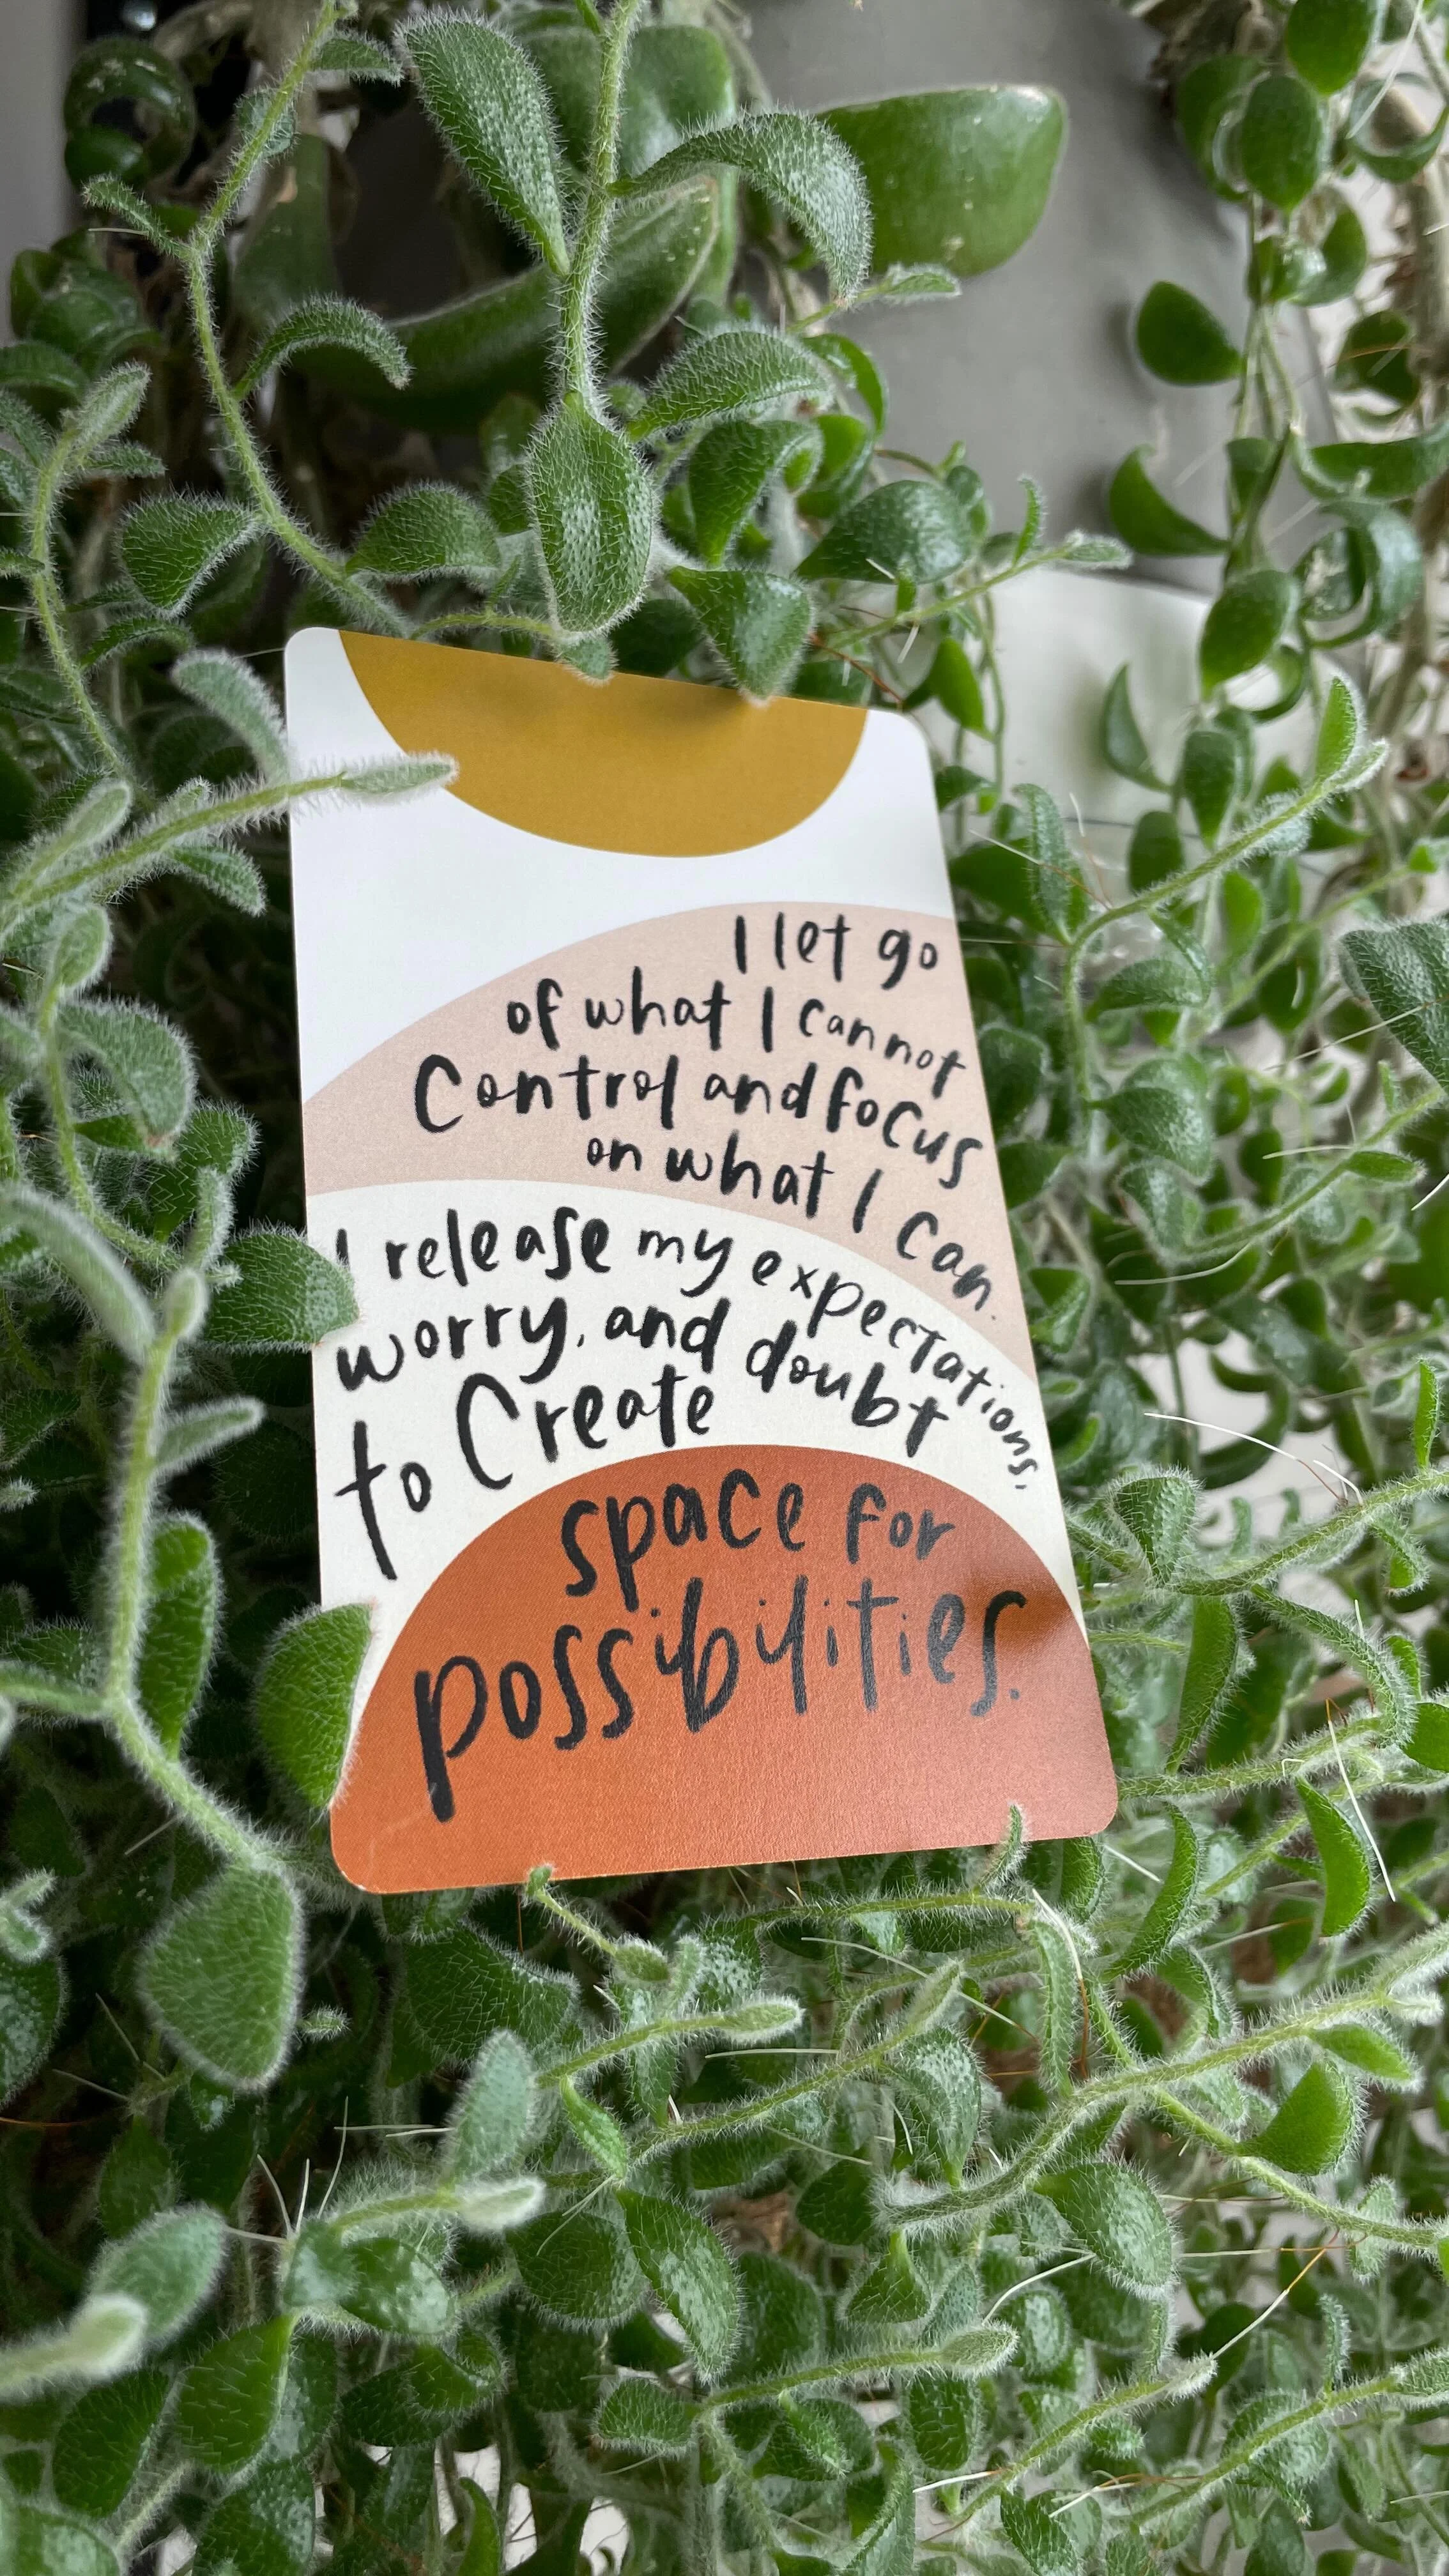 I let go
of what I cannot
Control and focus
on what I can.
I release my expectations,
worry, and doubt
to Create
space for
possibilities.